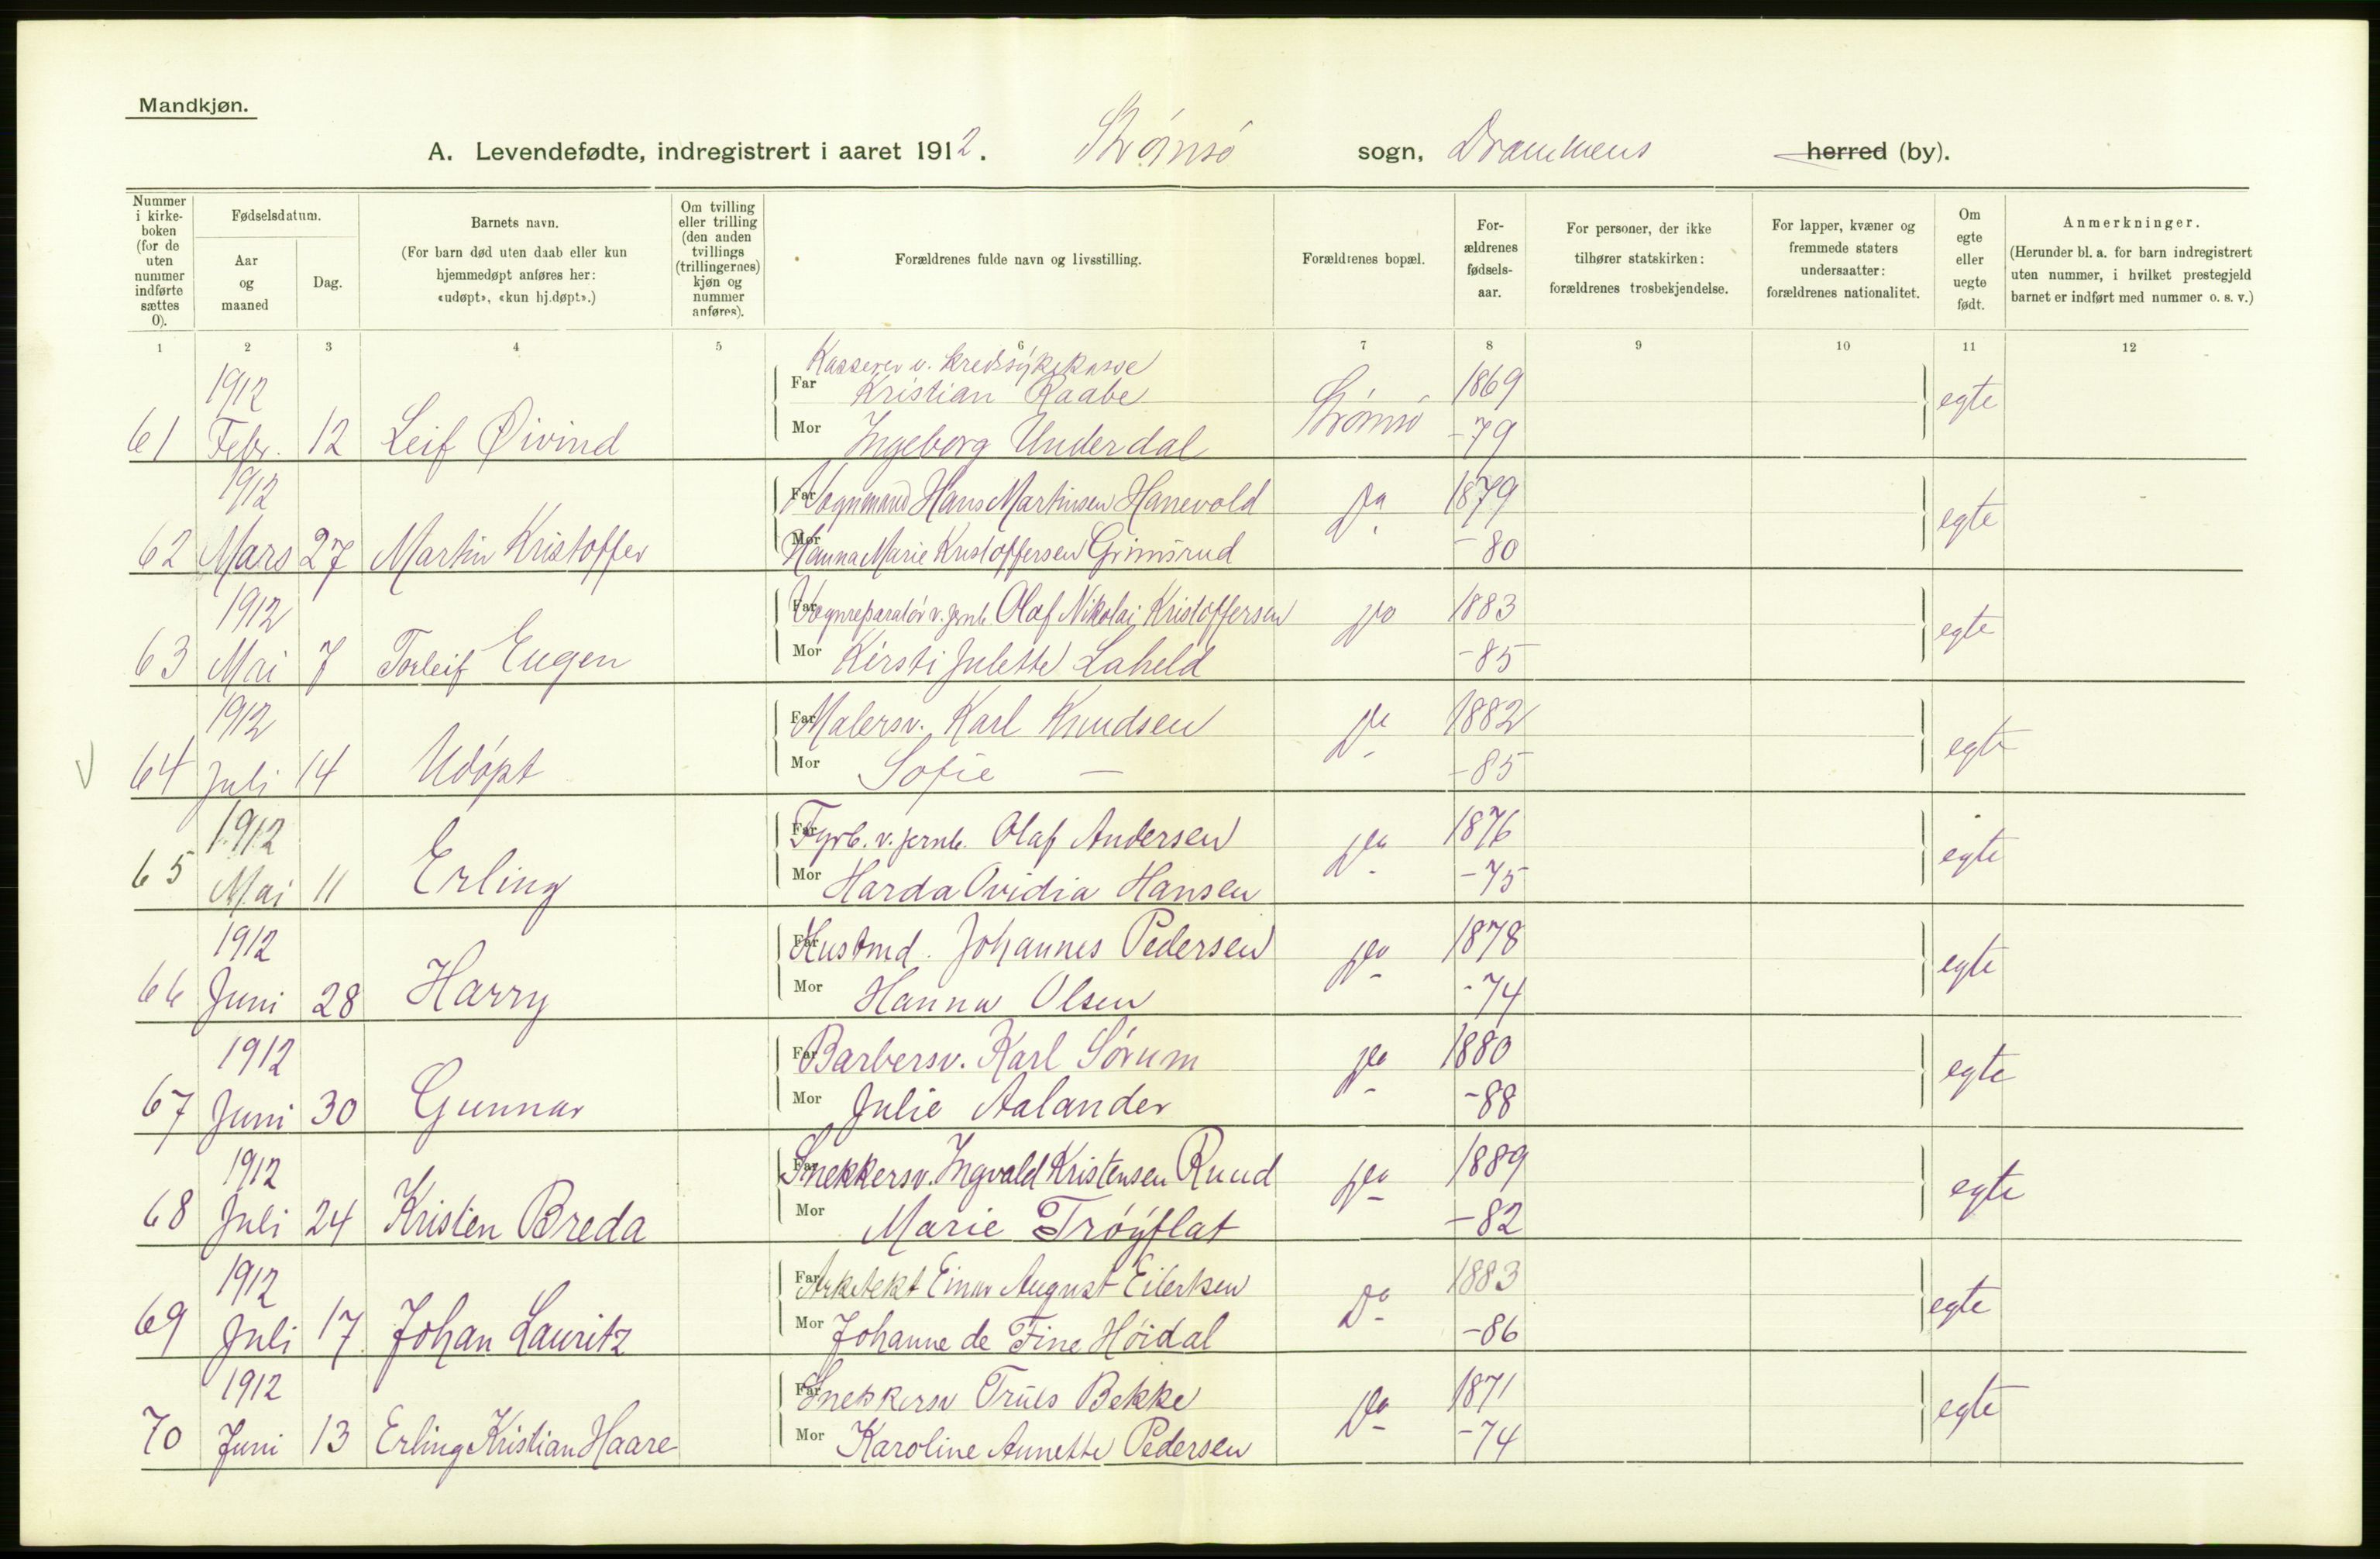 Mandkjøn.
A. Levendefødte, indregistrert i aaret 1912. Strømsø sogn, Drammens herred (by).
Nummer i kirke-boken (for de uten nummer indførte sættes 0).
Fødselsdatum.
Aar og maaned
Dag.
Barnets navn.
(For barn død uten daab eller kun hjemmedøpt anføres her: «udøpt», «kun hj.døpt».)
Om tvilling eller trilling (den anden tvillings (trillingernes) kjøn og nummer anføres).
Forældrenes fulde navn og livsstilling.
Forældrenes bopæl.
For-ældrenes fødsels-aar.
For personer, der ikke tilhører statskirken: forældrenes trosbekjendelse.
For lapper, kvæner og fremmede staters undersaatter: forældrenes nationalitet.
Om egte eller uegte født.
Anmerkninger.
(Herunder bl. a. for barn indregistrert uten nummer, i hvilket prestegjeld barnet er indført med nummer o. s. v.)
1 2 3 4 5 6 7 8 9 10 11 12
Kasserer v. kredssykekasse
1912 Far Kristian Raabe Strømsø 1869 egte
61 Febr. 12 Leif Øivind Mor Ingeborg Underdal -79
1912 Far Vognmand Hans Martinsen Hanevold Do 1879 egte
62 Mars 27 Martin Kristoffer Mor Hanna Marie Kristoffersen Grimsrud -80
1912 Far Vognreparatør v. jernb. Olaf Nikolai Kristoffersen Do 1883 egte
63 Mai 7 Torleif Eugen Mor Kirsti Julette Laheld -85
1912 Far Malersv. Karl Knudsen Do 1882 egte
V 64 Juli 14 Udøpt Mor Sofie — -85
1912 Far Fyrb. v. jernb. Olaf Andersen Do 1876 egte
65 Mai 11 Erling Mor Harda Ovidia Hansen -75
1912 Far Husbmd. Johannes Pedersen Do 1878 egte
66 Juni 28 Harry Mor Hanna Olsen -74
1912 Far Barbersv. Karl Sørum Do 1880 egte
67 Juni 30 Gunnar Mor Julie Aalander -88
1912 Far Snekkersv. Ingvald Kristensen Ruud Do 1889 egte
68 Juli 24 Kristen Breda Mor Marie Trøyflat -82
1912 Far Arkitekt Einar August Eilertsen Do 1883 egte
69 Juli 17 Johan Lauritz Mor Johanne de Fine Høidal -86
1912 Far Snekkersv Truls Bekke Do 1871 egte
70 Juni 13 Erling Kristian Haare Mor Karoline Annette Pedersen -74